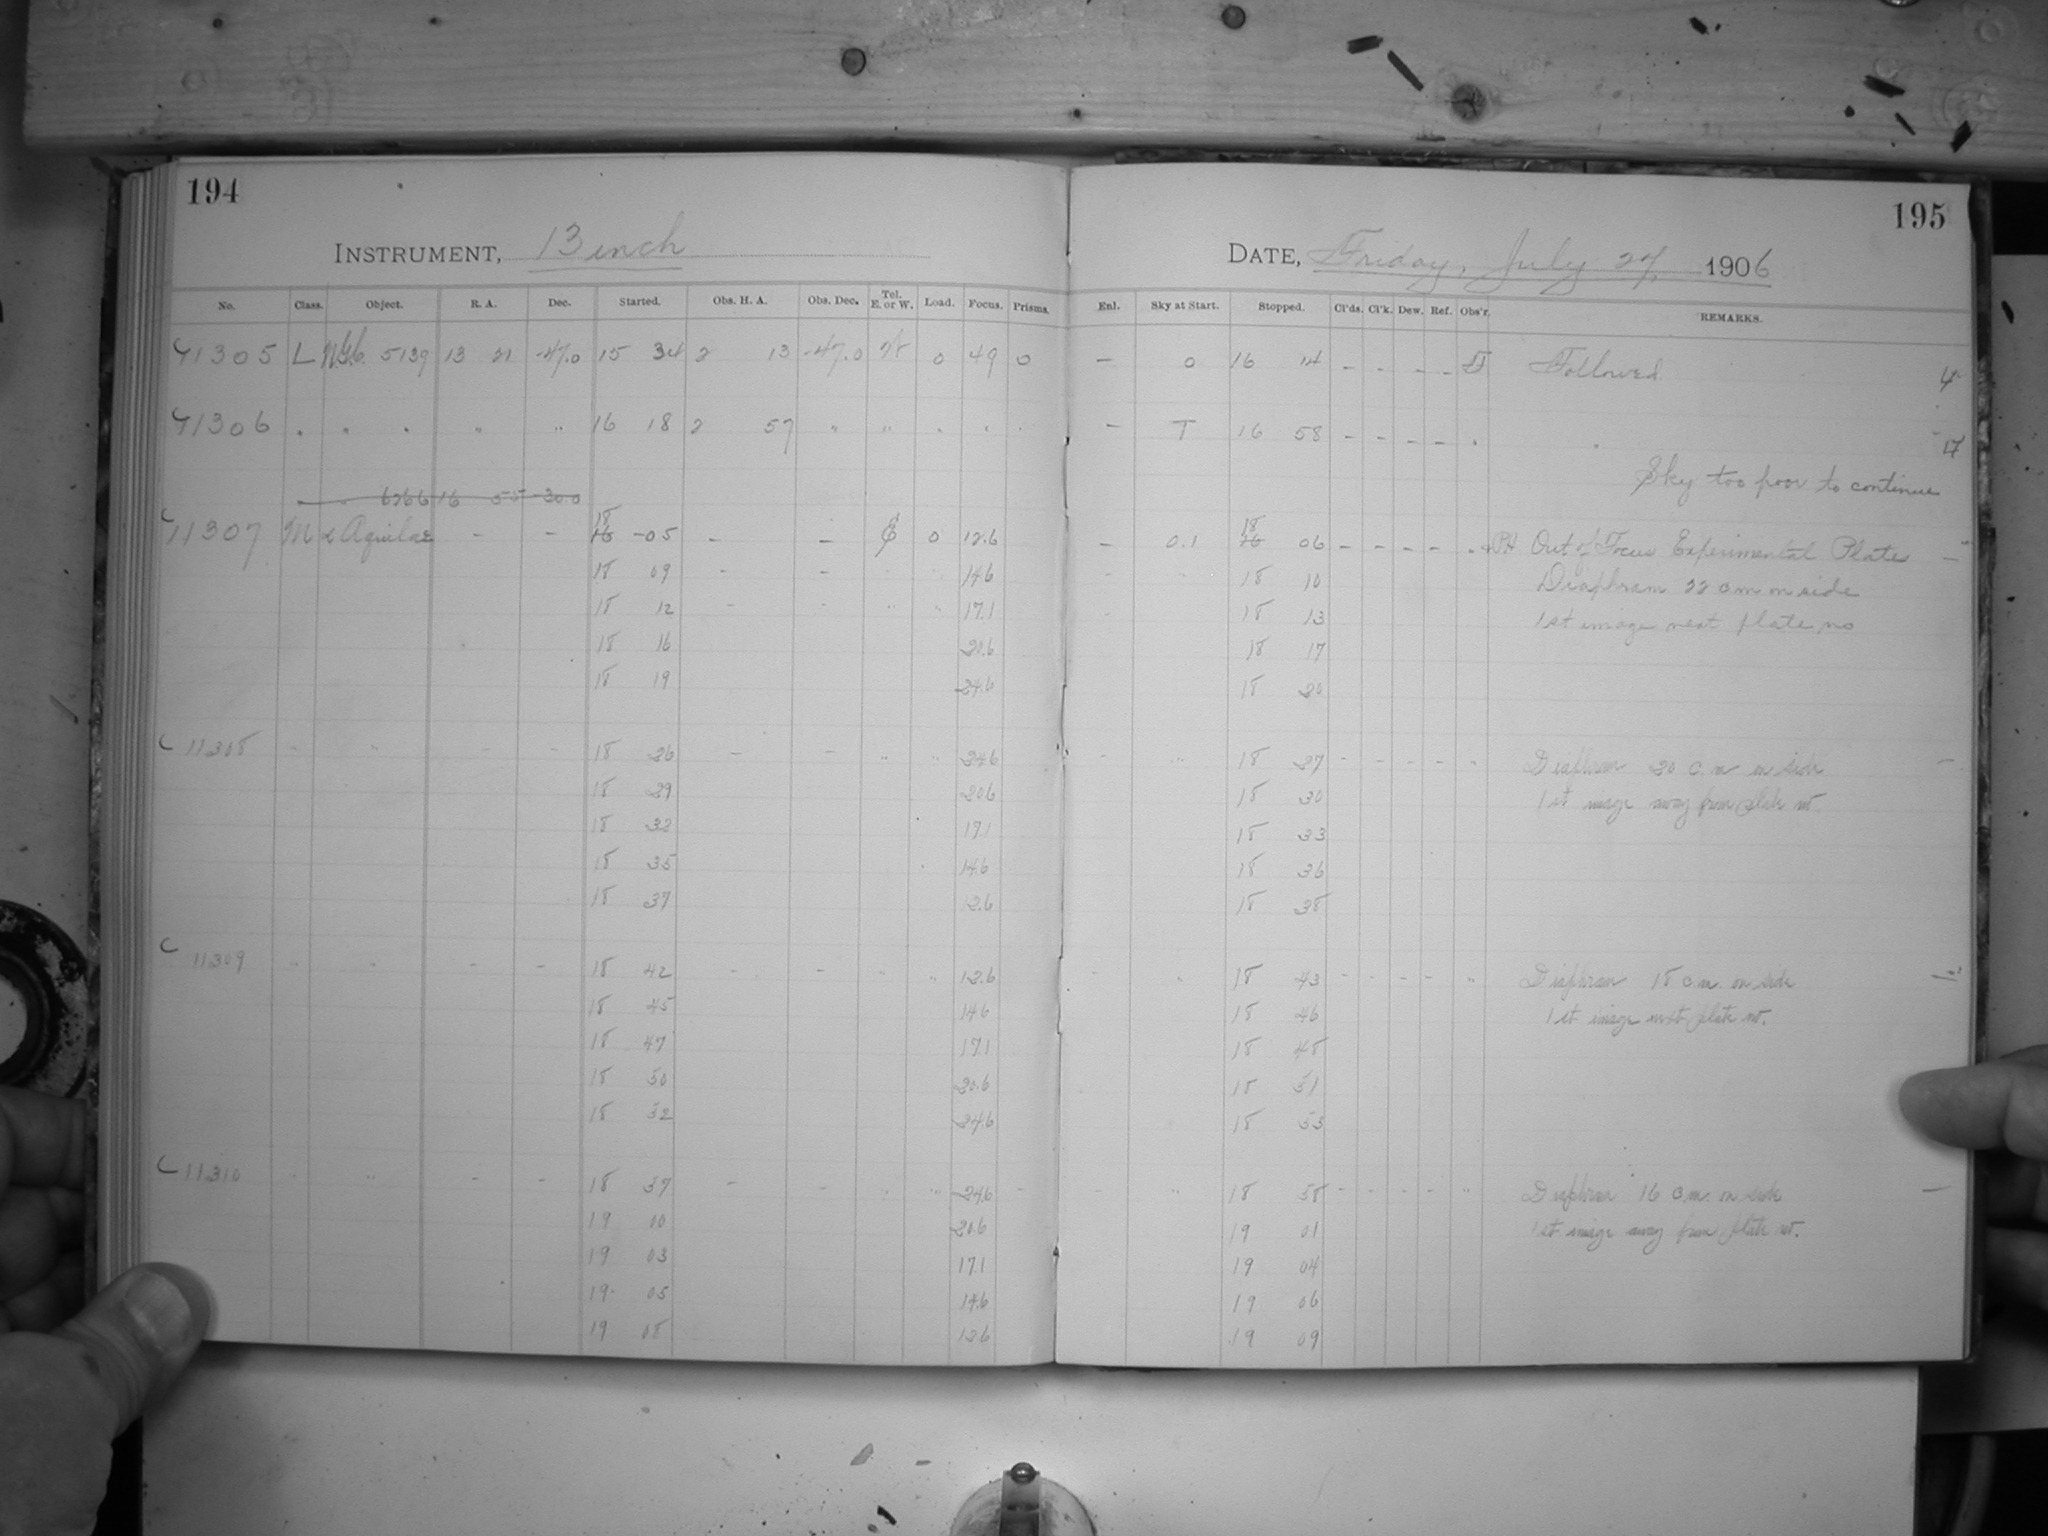 194
195
INSTRUMENT, 13 inch
DATE, Friday, July 27, 1906
No. Class. Object. R. A. Dec. Started. Obs. H. A. Obs. Dec. Tel. E. or W. Load. Focus. Prisms. Enl. Sky at Start. Stopped. Cl'ds. Cl'k. Dew. Ref. Obs'r. REMARKS.
11305 L N.G.C. 5139 13 21 -47.0 15 34 2 13 -47.0 W 0 49 0 — 0 16 14 - - - - Followed 4
11306 " " " " " 16 18 2 57 " " " " " — T 16 58 - - - - " "
Sky too poor to continue
6266 16 55 -30.0
11307 M α Aquilae - - 18 16 -05 - - 0 12.6 — 0.1 18 16 06 - - - - Out of Focus Experimental Plates —
18 09 - - " " 14.6 - " 18 10 Diaphram 22 cm on side
18 12 - - " " 17.1 - 18 13 1st image next plate no
18 16 20.6 18 17
18 19 24.6 18 20
11308 " " - - 18 26 - - " " 24.6 - " 18 27 - - - - " Diaphram 20 c.m on side —
18 29 20.6 18 30 1st image away from plate no.
18 32 17.1 18 33
18 35 14.6 18 36
18 37 12.6 18 38
11309 " " - - 18 42 - - " " 12.6 - " 18 43 - - - - " Diaphram 18 cm. on side —
18 45 14.6 18 46 1st image next plate no.
18 47 17.1 18 48
18 50 20.6 18 51
18 52 24.6 18 53
11310 " " - - 18 57 - - " " 24.6 - - " 18 58 - - - - " Diaphram 16 cm. on side —
19 00 20.6 19 01 1st image away from plate no.
19 03 17.1 19 04
19 05 14.6 19 06
19 08 12.6 19 09